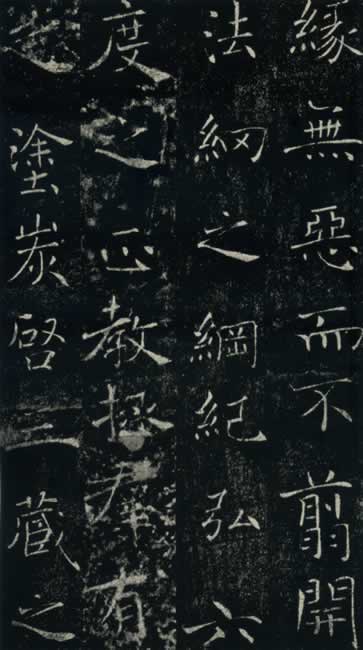 緣無惡而不翦開
法網之綱紀弘六
度之正教拯群有
之塗炭啓三藏之